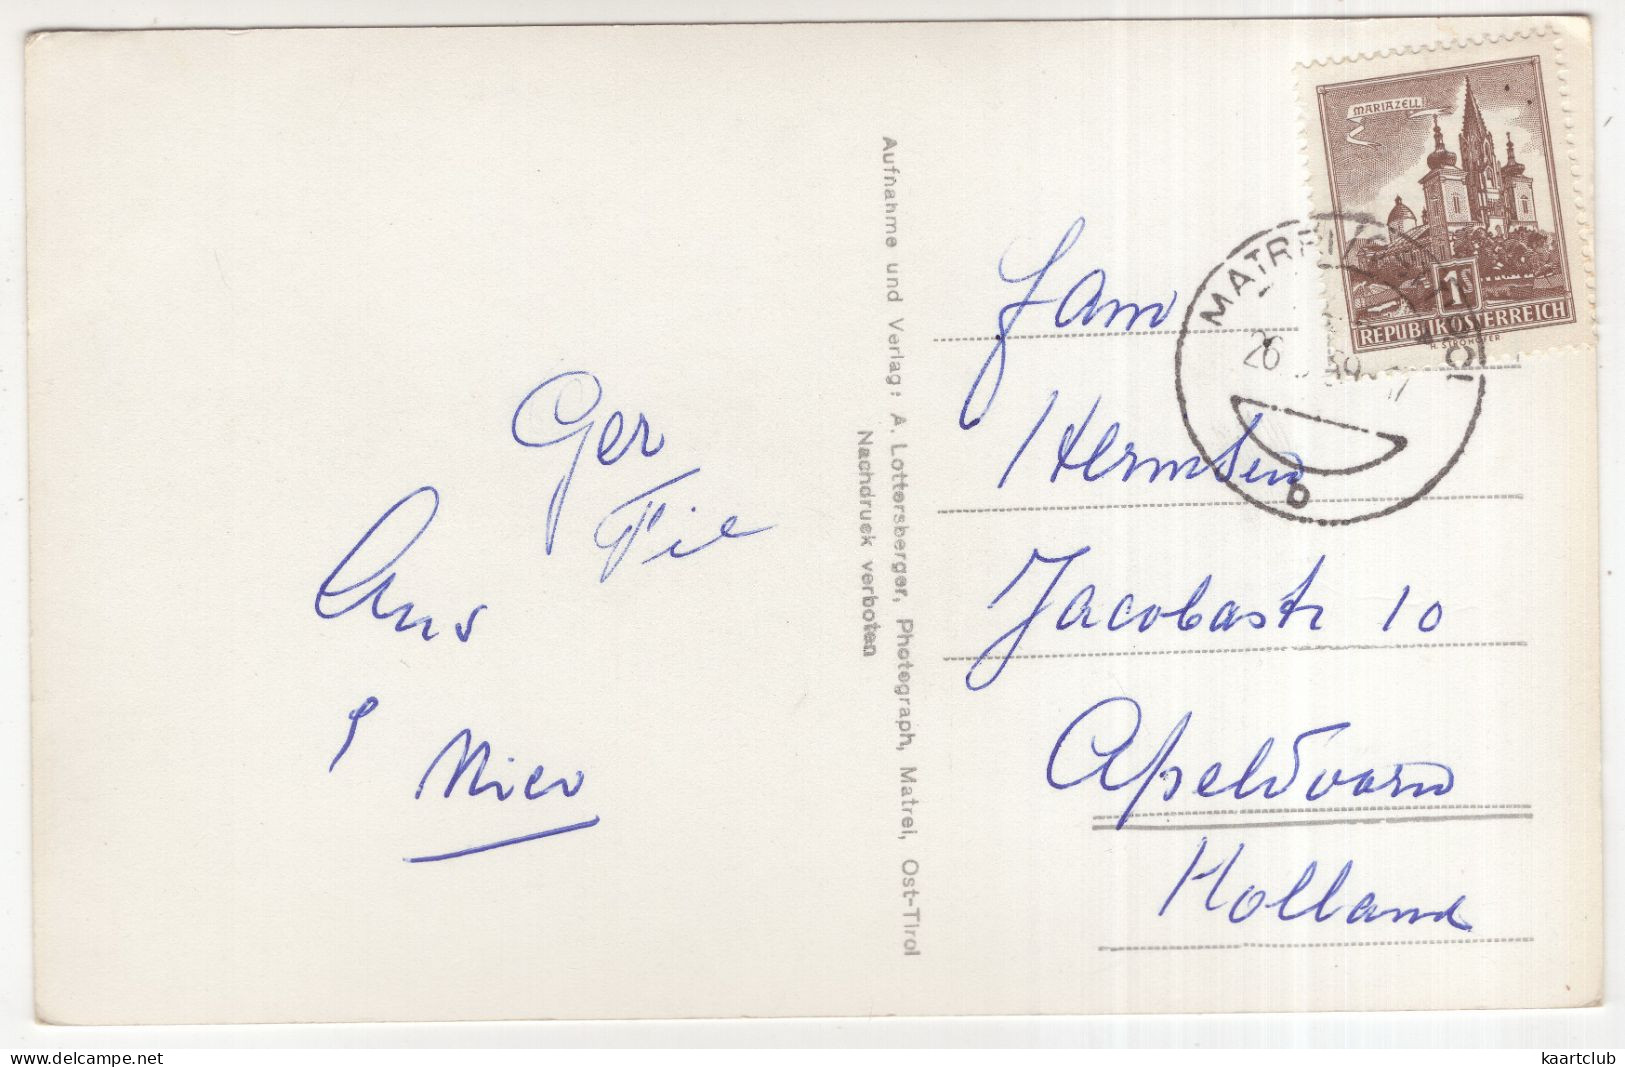 Ger
Tie
Ans
Nico
Aufnahme und Verlag: A. Lottersberger, Photograph, Matrei, Ost-Tirol
Nachdruck verboten
MARIAZELL
1S
REPUBLIK ÖSTERREICH
MATREI
26
59
b
Fam
Hermsen
Jacobastr 10
Apeldoorn
Holland
www.delcampe.net
kaartclub